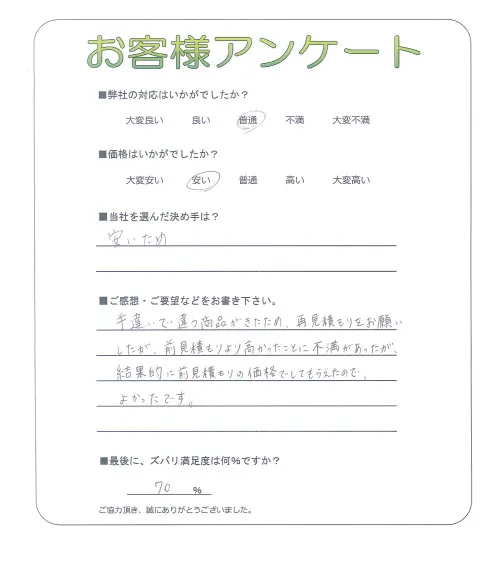 お客様アンケート
■弊社の対応はいかがでしたか？
大変良い 良い 普通 不満 大変不満
■価格はいかがでしたか？
大変安い 安い 普通 高い 大変高い
■当社を選んだ決め手は？
安いため
■ご感想・ご要望などをお書き下さい。
手違いで違う商品がきたため、再見積もりをお願い
したが、前見積もりより高かったことに不満があったが、
結果的に前見積もりの価格でしてもらえたので、
よかったです。
■最後に、ズバリ満足度は何％ですか？
70 ％
ご協力頂き、誠にありがとうございました。